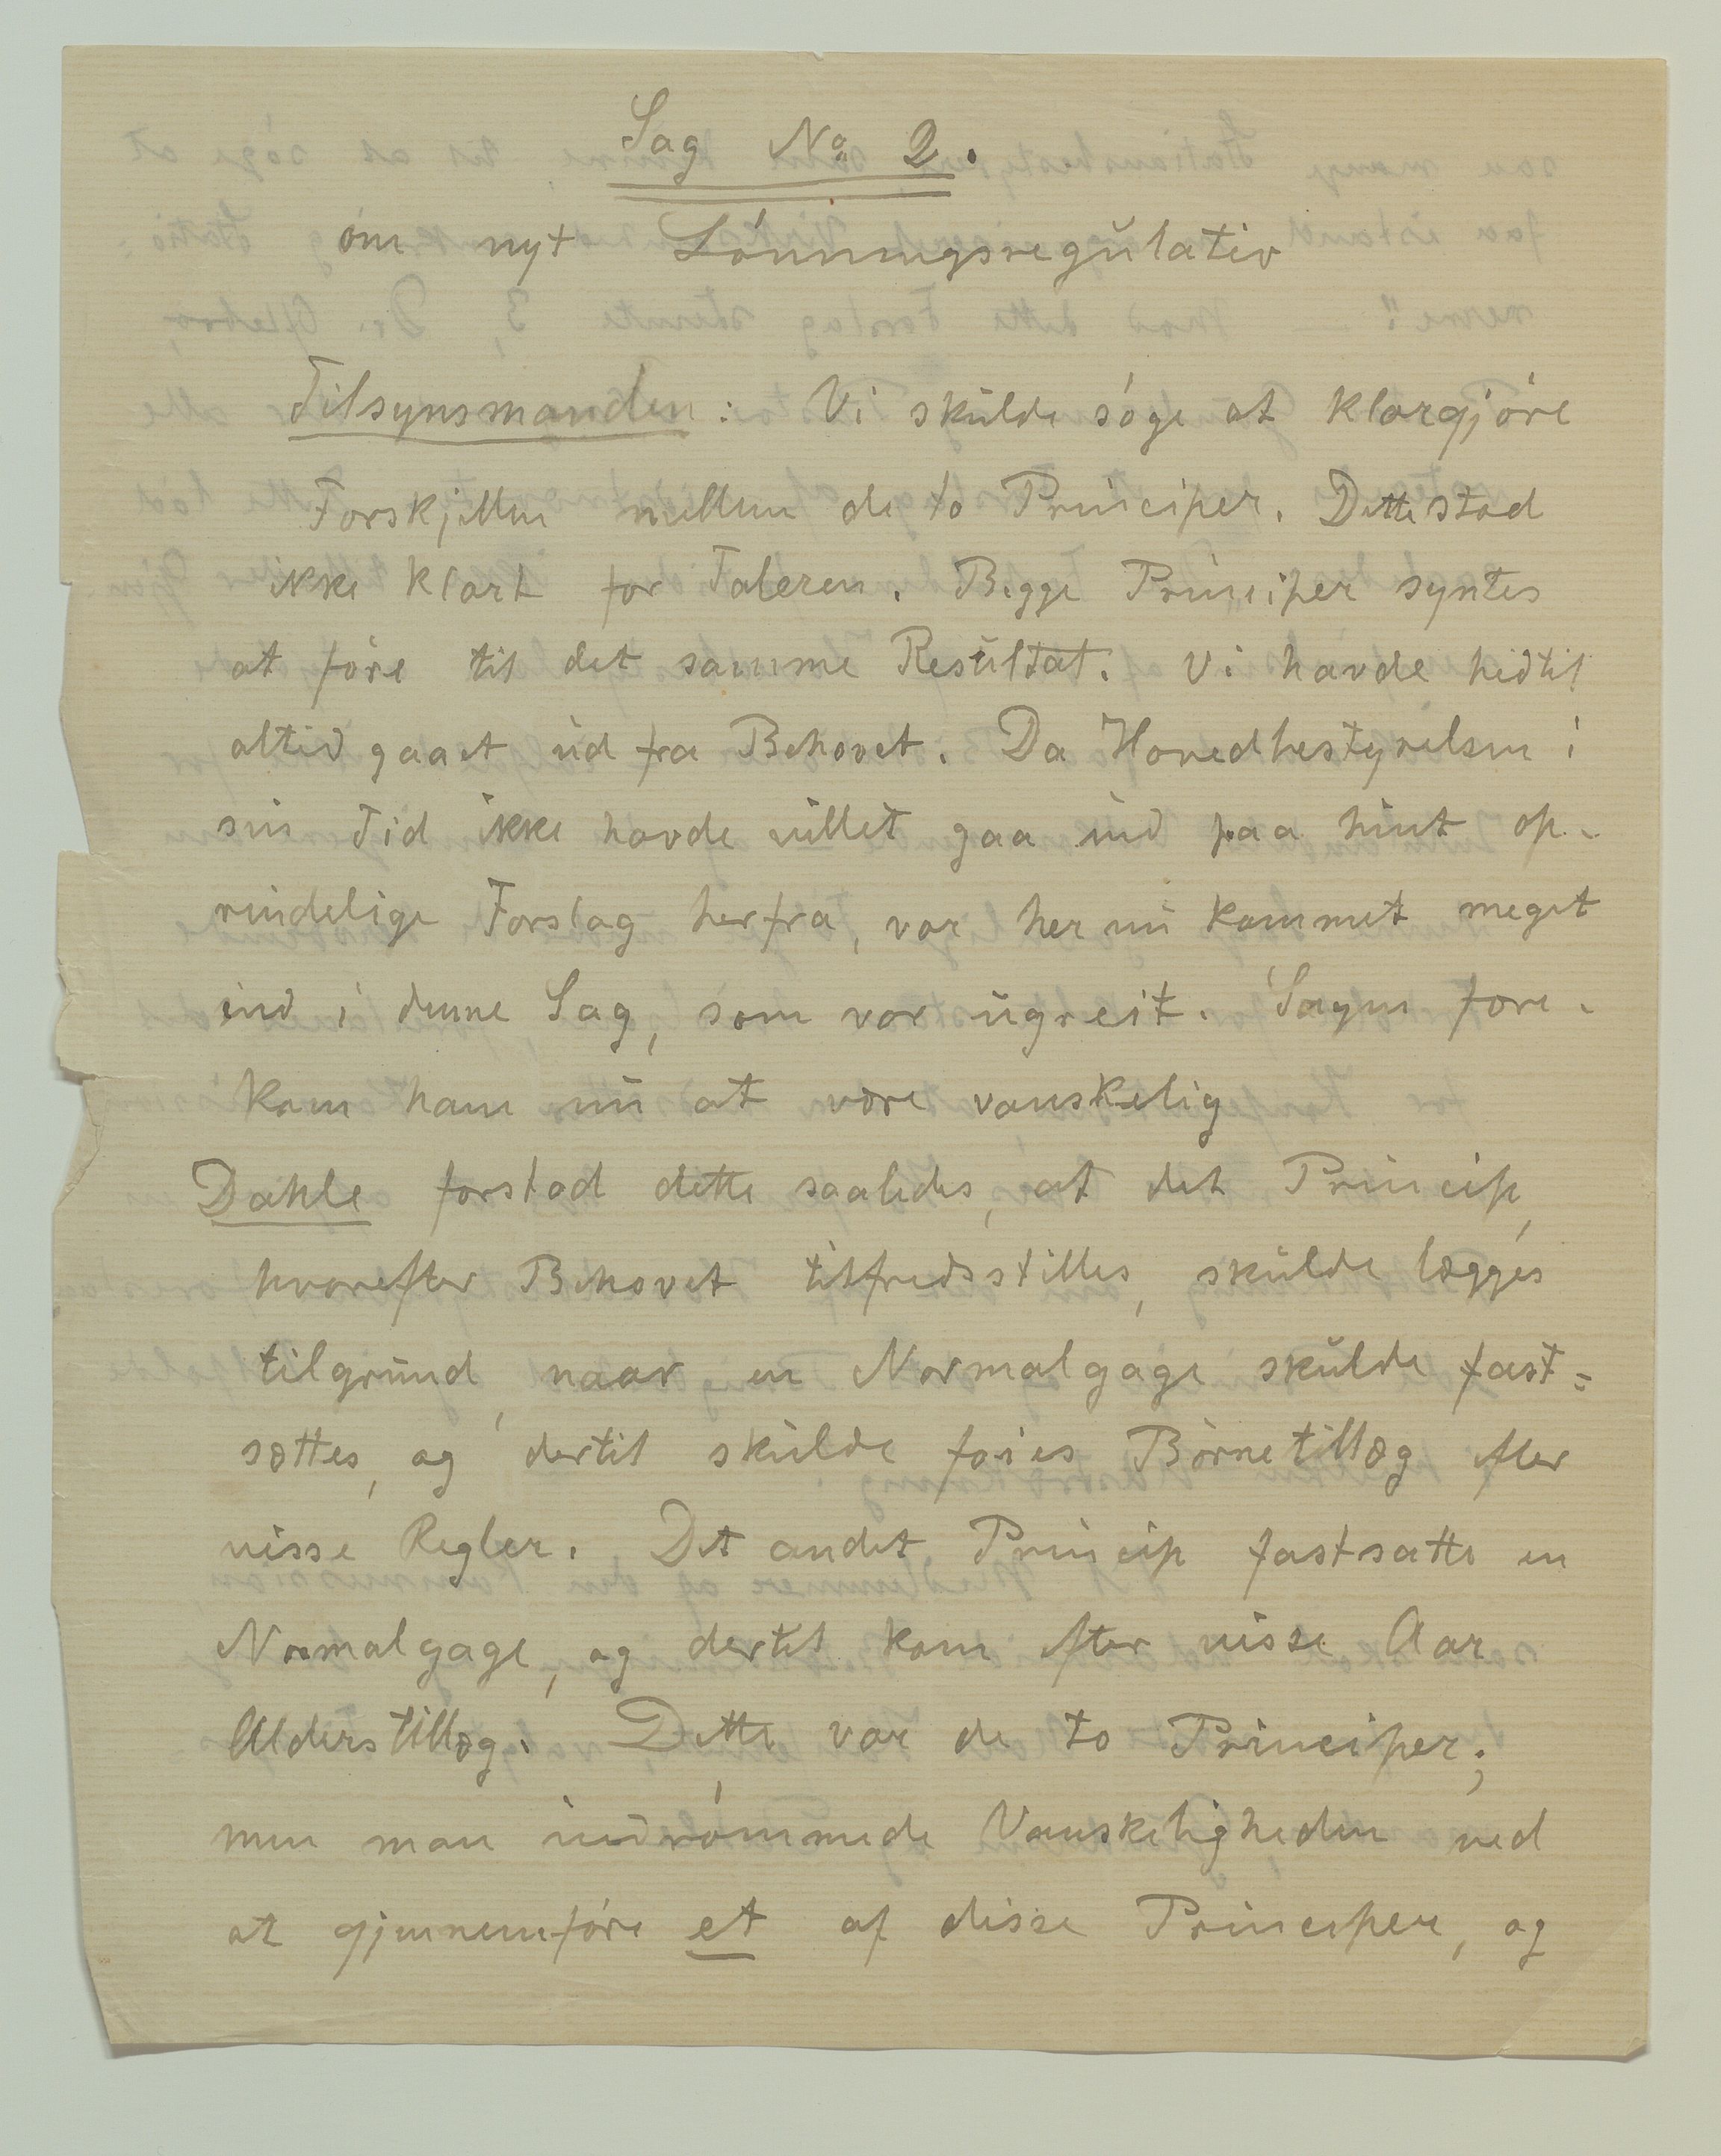 Sag No 2.
om nyt Lönningsregulativ
Tilsynsmanden: Vi skulde söge at klargjöre
Forskjellen mellem de to Principer. Dette stod
ikke klart for Taleren. Begge Principer syntes
at före til det samme Resultat. Vi havde hidtil
altid gaaet ud fra Behovet. Da Hovedbestyrelsen i
sin Tid ikke havde villet gaa ind paa hint op-
rindelige Forslag herfra, var her nu kommet meget
ind i denne Sag, som var ugreit. Sagen fore-
kom ham nu at være vanskelig
Dahle forstod dette saaledes, at det Princip,
hvorefter Behovet tilfredsstilles, skulde lægges
tilgrund, naar en Normalgage skulde fast=
sættes, og dertil skulde föies Börnetillæg efter
visse Regler. Det andet Princip fastsatte en
Normalgage, og dertil kom efter visse Aar
Alderstillæg. Dette var de to Principer;
men man indrömmede Vanskeligheden ved
at gjennemföre et af disse Principer, og